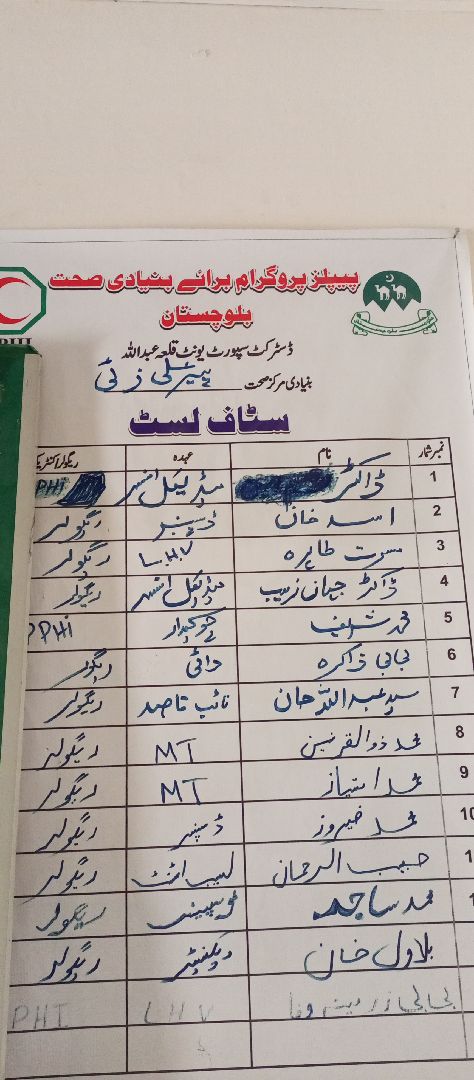 پیپلز پروگرام برائے بنیادی صحت
بلوچستان
ڈسٹرکٹ سپورٹ یونٹ قلعہ عبداللہ
بنیادی مرکز صحت پیر علی زئی
سٹاف لسٹ
نمبر شمار نام عہدہ
1 ڈاکٹر میڈیکل افسر PPHI
2 اسد خان ڈسپنسر ریگولر
3 مسرت طاہرہ LHV ریگولر
4 ڈاکٹر جہان زیب میڈیکل افسر ریگولر
5 محمد شریف چوکیدار PPHI
6 بی بی ذاکرہ دائی ریگولر
7 سید عبداللہ جان نائب قاصد ریگولر
8 محمد ذوالقرنین MT ریگولر
9 محمد امتیاز MT ریگولر
10 محمد فیروز ڈسپنسر ریگولر
حبیب الرحمان ریگولر
محمد ساجد ریگولر
بلاول خان ویکسینیٹر ریگولر
بی بی LHV PHI